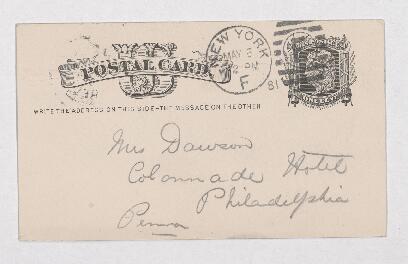 POSTAL CARD
NEW YORK
MAY 3
PM
F
81
ONE CENT
WRITE THE ADDRESS ON THIS SIDE—THE MESSAGE ON THE OTHER
Mrs Dawson
Colonnade Hotel
Philadelphia
Penna